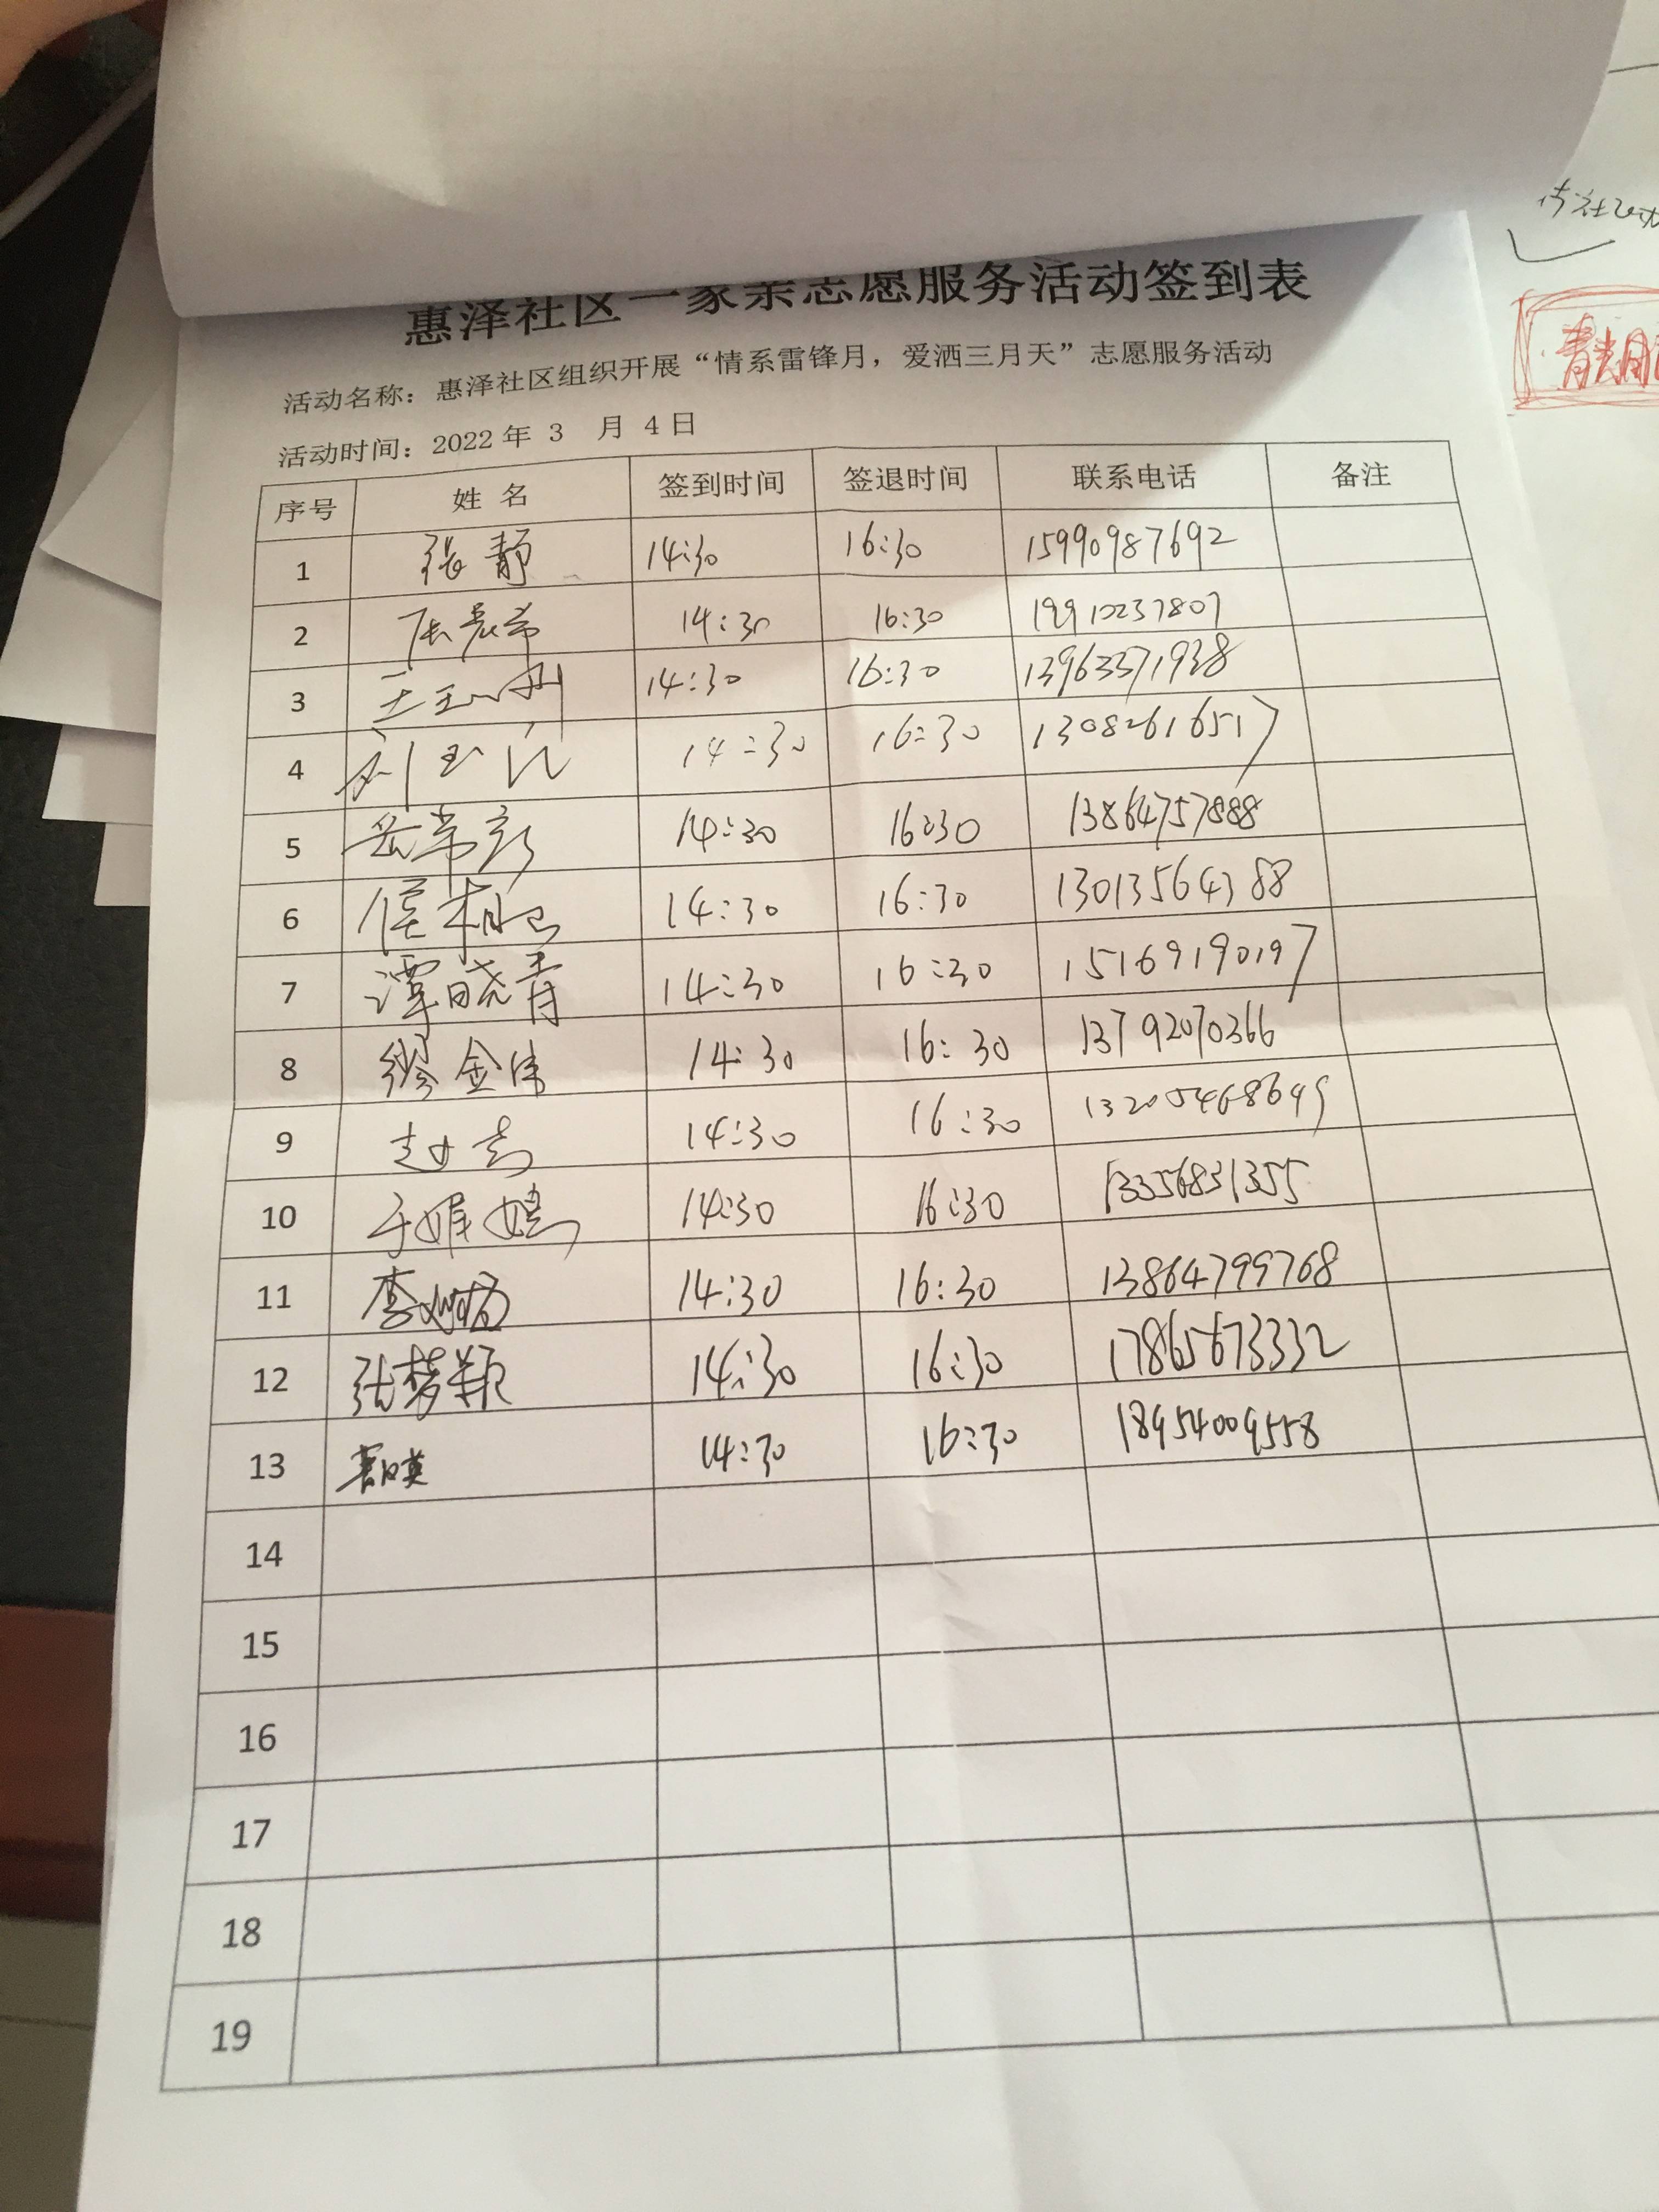 惠泽社区一家亲志愿服务活动签到表
活动名称：惠泽社区组织开展“情系雷锋月，爱洒三月天”志愿服务活动
活动时间：2022年 3 月 4日
序号 姓 名 签到时间 签退时间 联系电话 备注
1 张静 14:30 16:30 15990987692
2 14:30 16:30 19910237807
3 14:30 16:30 13963571938
4 14:30 16:30 13082616517
5 岳常彩 14:30 16:30 13864757888
6 14:30 16:30 13013564388
7 谭晓青 14:30 16:30 15169190197
8 缪金伟 14:30 16:30 13792070366
9 14:30 16:30 13205468649
10 14:30 16:30 13356831355
11 14:30 16:30 13864799768
12 张梦颖 14:30 16:30 17865673332
13 14:30 16:30 18954009558
14
15
16
17
18
19